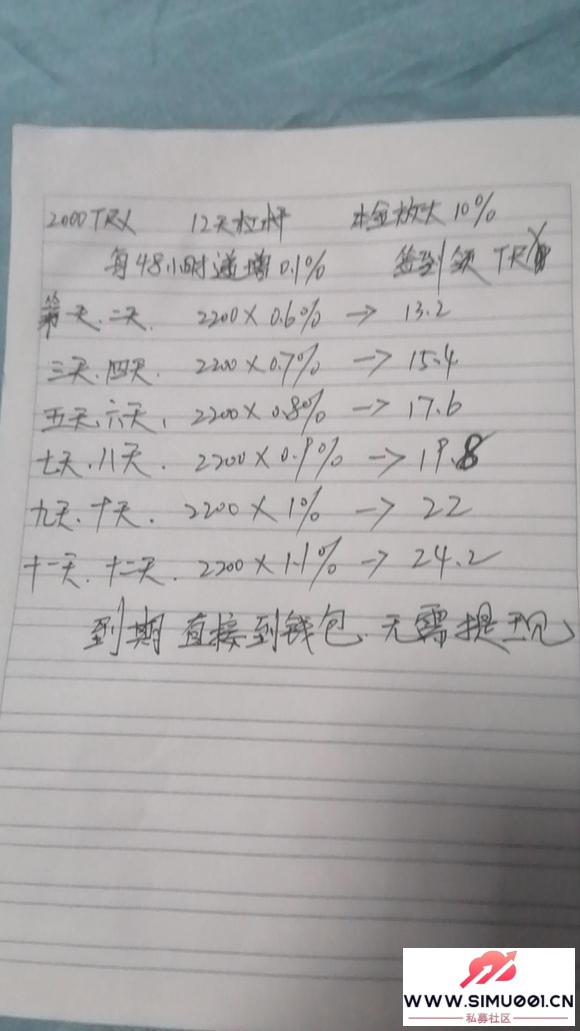 2000TRX 12天杠杆 本金放大10%
每48小时递增0.1% 签到领TRX
第一天.二天. 2200×0.6% → 13.2
三天.四天. 2200×0.7% → 15.4
五天.六天, 2200×0.8% → 17.6
七天.八天. 2200×0.9% → 19.8
九天.十天. 2200×1% → 22
十一天.十二天. 2200×1.1% → 24.2
到期直接到钱包.无需提现
WWW.SIMU001.CN
私募社区